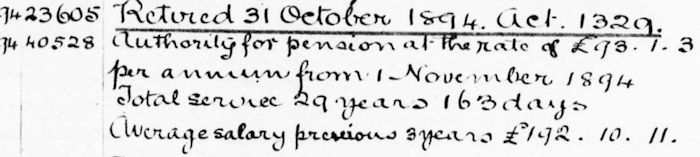 9423605 Retired 31 October 1894. Act. 1329.
94 40528 Authority for pension at the rate of £93. 1. 3
per annum from 1 November 1894
Total service 29 years 163 days
Average salary previous 3 years £192. 10. 11.